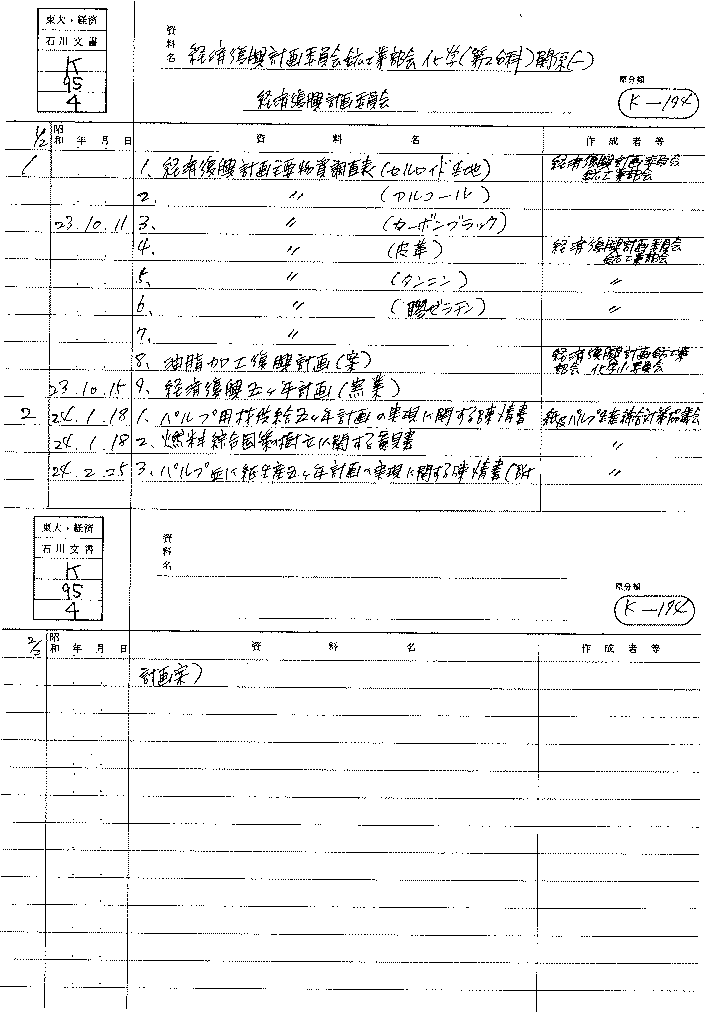 東大・経済
石川文書
K
95
4
資料名 経済復興計画委員会鉱工業部会化学(第2分科)関係(一)
経済復興計画委員会
原分類
K-174
1/2 昭和 年 月 日 資 料 名 作 成 者 等
1 1、経済復興計画主要物資調査表(セルロイド生地) 経済復興計画委員会鉱工業部会
2、 〃 (アルコール)
23.10.11 3、 〃 (カーボンブラック)
4、 〃 (皮革) 経済復興計画委員会鉱工業部会
5、 〃 (タンニン) 〃
6、 〃 (膠ゼラチン) 〃
7、 〃
8、油脂加工復興計画(案) 経済復興計画鉱工業部会 化学小委員会
23.10.15 9、経済復興五ヶ年計画(農業)
2 24.1.18 1、パルプ用材後給五ヶ年計画の実現に関する陳情書
24.1.18 2、燃料綜合国策樹立に関する意見書 〃
24.2.25 3、パルプ並に紙生産五ヶ年計画の実現に関する陳情書(附 〃
東大・経済
石川文書
K
95
4
資料名
原分類
K-174
2/2 昭和 年 月 日 資 料 名 作 成 者 等
計画案)